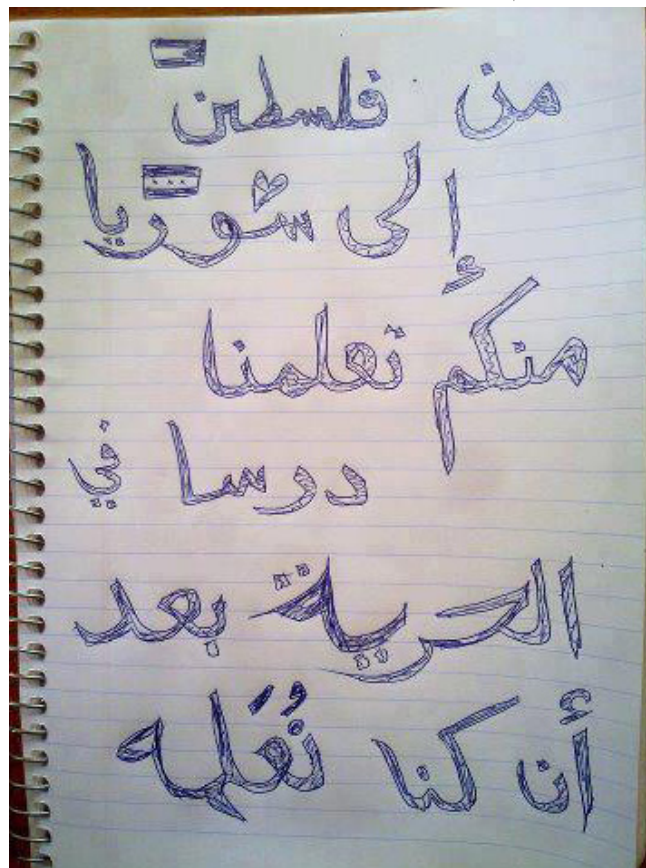 من فلسطين
إلى سوريا
منكم تعلمنا
درسا في
الحرية بعد
أن كنا نُعَلمه